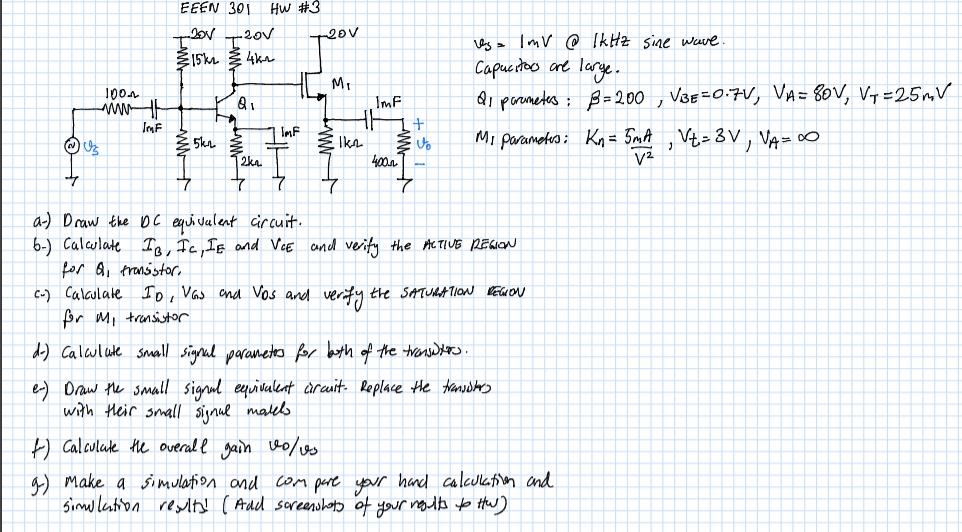 EEEN 301 HW #3
20V 20V 20V
15kΩ 4kΩ
100Ω
M1
Q1
1mF
1mF
1mF
+
vs
5kΩ
2kΩ
1kΩ
400Ω
vo
-
vs = 1mV @ 1kHz sine wave.
Capacitors are large.
Q1 parametes : β=200 , VBE=0.7V, VA=80V, VT=25mV
M1 parametos: Kn = 5mA/V² , Vt=3V, VA=∞
a-) Draw the DC equivalent circuit.
b-) Calculate IB, IC, IE and VCE and verify the ACTIVE REGION
for Q1 transistor.
c-) Calculate ID, VGS and VDS and verify the SATURATION REGION
for M1 transistor
d-) Calculate small signal parametes for both of the transistors.
e-) Draw the small signal equivalent circuit. Replace the transistors
with their small signal models
f-) Calculate the overall gain vo/vs
g-) Make a simulation and compare your hand calculation and
simulation results (Add screenshots of your results to HW)